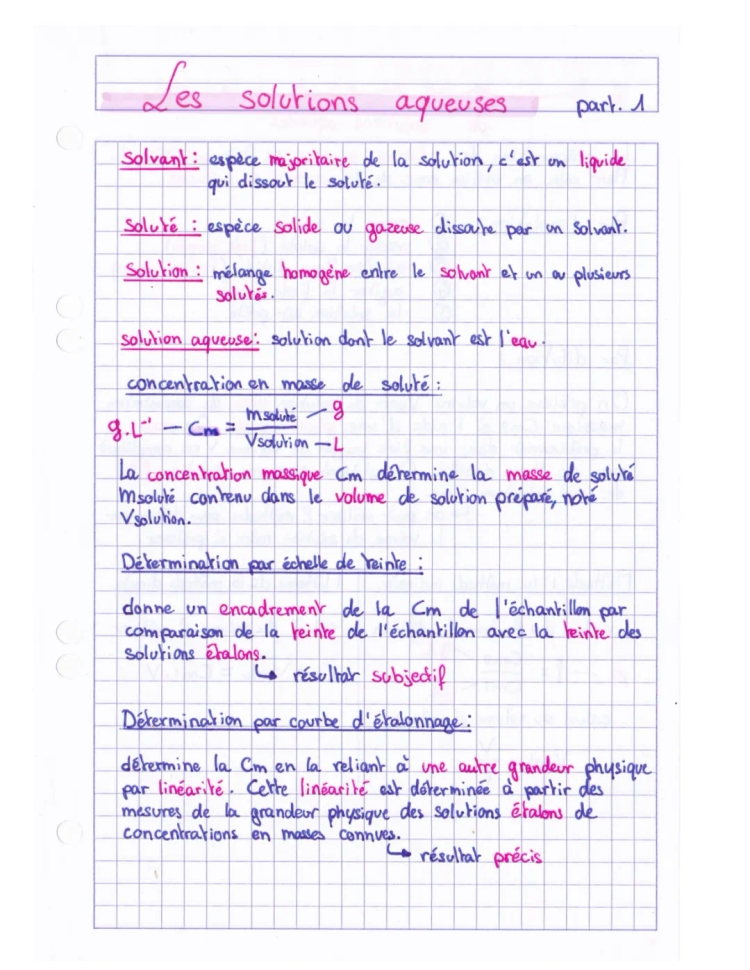 Les solutions aqueuses part. 1
Solvant : espèce majoritaire de la solution, c'est un liquide
qui dissout le soluté.
Soluté : espèce solide ou gazeuse dissoute par un solvant.
Solution : mélange homogène entre le solvant et un ou plusieurs
solutés.
solution aqueuse : solution dont le solvant est l'eau.
concentration en masse de soluté :
g.L⁻¹ — Cm = msoluté — g
Vsolution — L
La concentration massique Cm détermine la masse de soluté
msoluté contenu dans le volume de solution préparé, noté
Vsolution.
Détermination par échelle de teinte :
donne un encadrement de la Cm de l'échantillon par
comparaison de la teinte de l'échantillon avec la teinte des
solutions étalons.
↳ résultat subjectif
Détermination par courbe d'étalonnage :
détermine la Cm en la reliant à une autre grandeur physique
par linéarité. Cette linéarité est déterminée à partir des
mesures de la grandeur physique des solutions étalons de
concentrations en masses connues.
↳ résultat précis